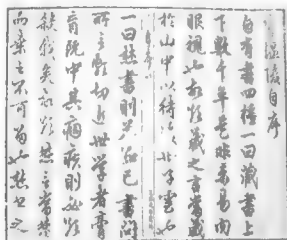 溫陵自序
自有書四種一曰藏書上
下數千年是非未易肉
眼視也故欲藏之言當藏
於山中以待後世子雲也
一曰焚書則答知己書問
所言頗切近世學者膏
肓既中其痼疾則必欲
殺我矣故欲焚之言當焚
而棄之不可留也焚之